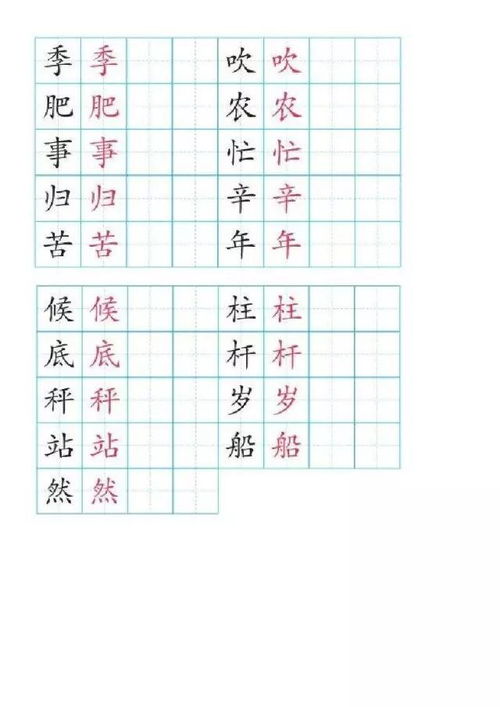 季季 吹吹
肥肥 农农
事事 忙忙
归归 辛辛
苦苦 年年
候候 柱柱
底底 杆杆
秤秤 岁岁
站站 船船
然然